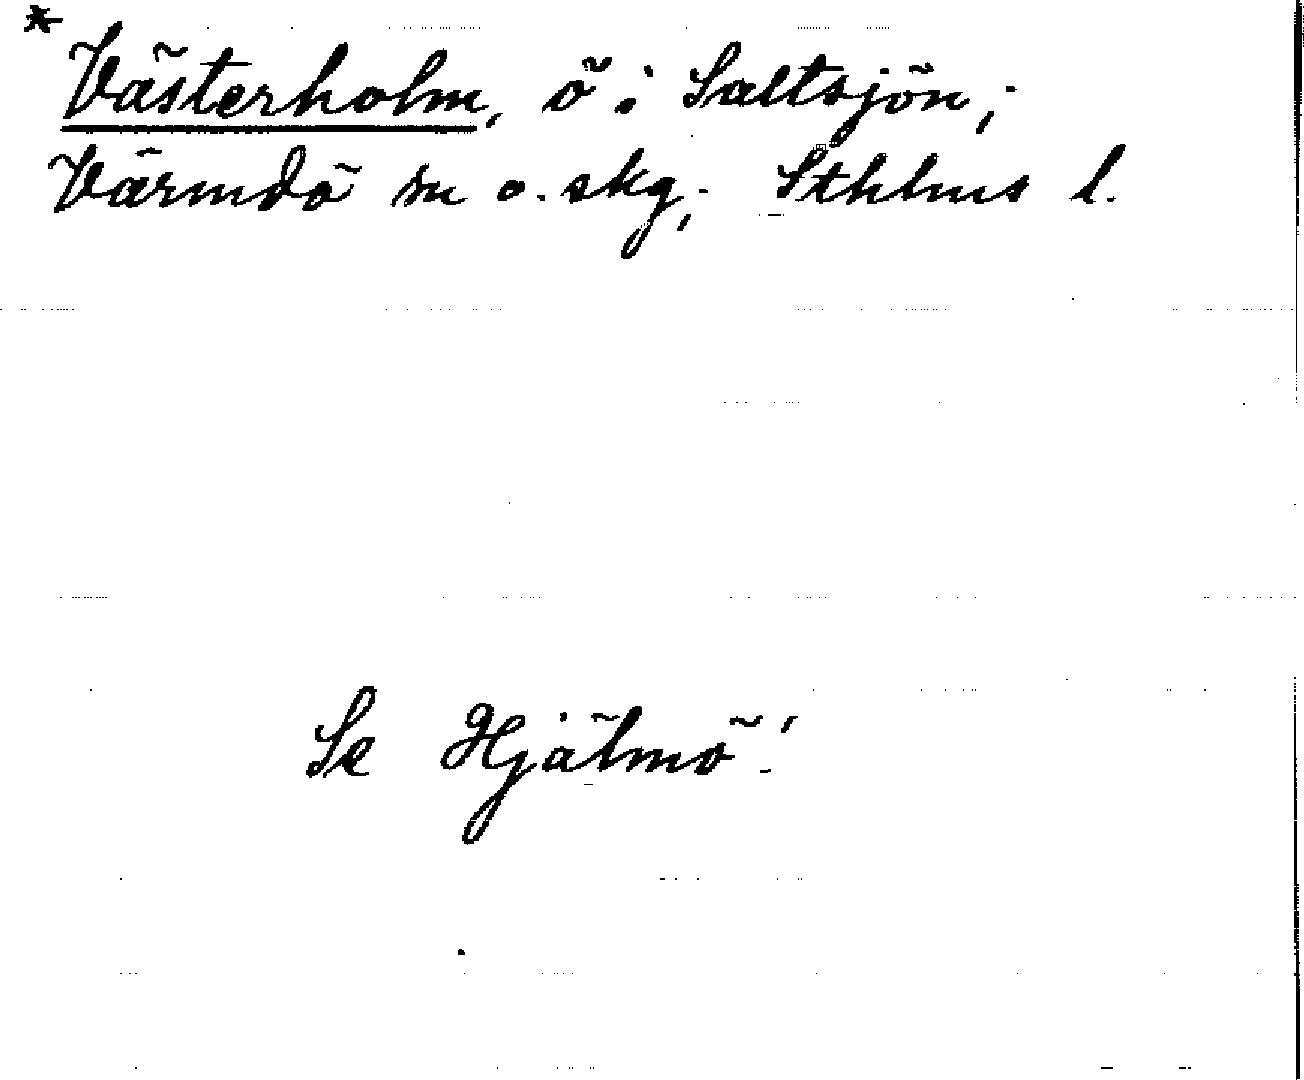 * Västerholm, ö i Saltsjön,
Värmdö sn o. skg, Sthlms l.
Se Hjälmö!